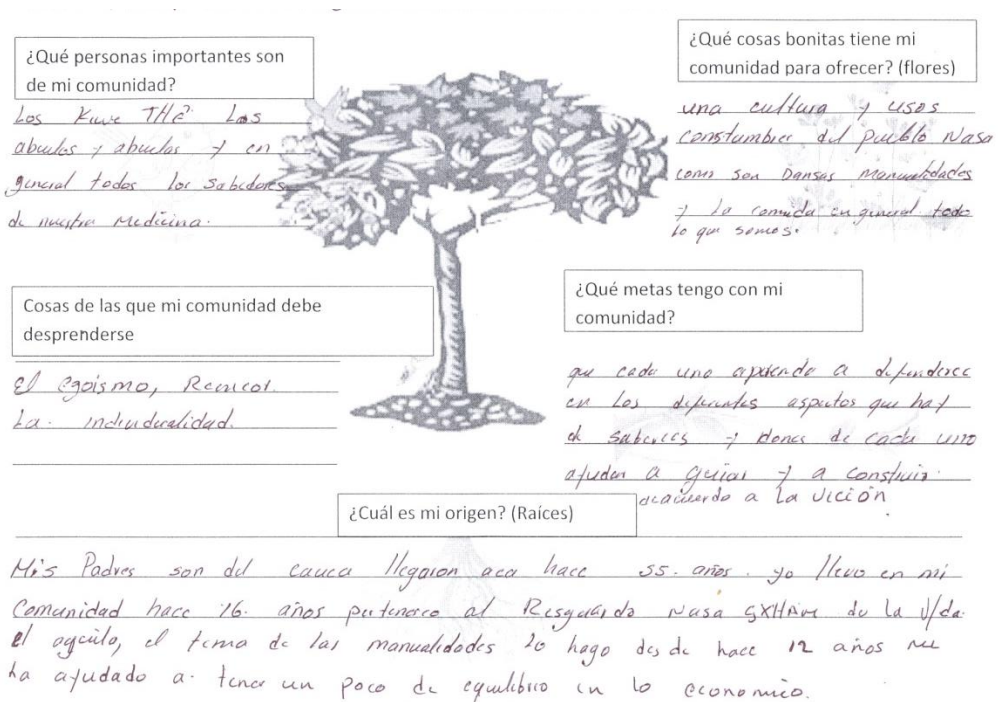 ¿Qué personas importantes son
de mi comunidad?
Los Kuwe THẽ Los
abuelos y abuelas y en
general todos los sabedores
de nuestra Medicina.
¿Qué cosas bonitas tiene mi
comunidad para ofrecer? (flores)
una cultura y usos
constumbres del pueblo Nasa
como son Dansas manualidades
y la comida en general todo
lo que somos.
Cosas de las que mi comunidad debe
desprenderse
El egoismo, Rencor.
La individualidad.
¿Qué metas tengo con mi
comunidad?
que cada uno aprenda a defenderse
en Los diferentes aspectos que hay
de saberes y dones de cada uno
ayudan a guiar y a construir
deacuerdo a la vición
¿Cuál es mi origen? (Raíces)
Mis Padres son del cauca llegaron aca hace 55. años. yo llevo en mi
Comunidad hace 16. años pertenesco al Resguardo Nasa de la V/da
el aguilo, el tema de las manualidades lo hago desde hace 12 años me
ha ayudado a tener un poco de equilibrio en lo economico.